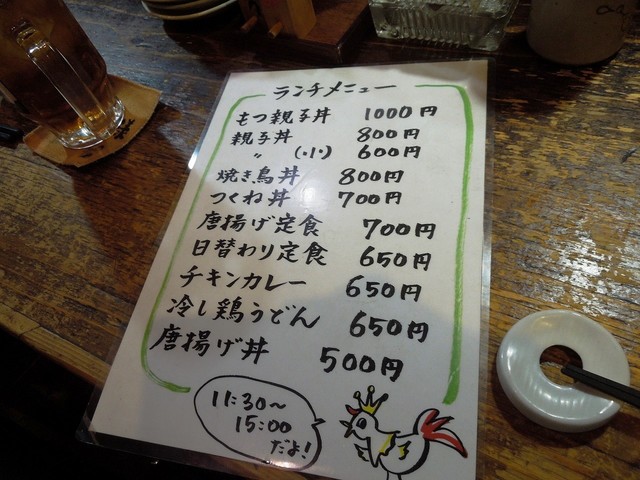 ランチメニュー
もつ親子丼 1000円
親子丼 800円
〃 (小) 600円
焼き鳥丼 800円
つくね丼 700円
唐揚げ定食 700円
日替わり定食 650円
チキンカレー 650円
冷し鶏うどん 650円
唐揚げ丼 500円
11:30〜
15:00
だよ!